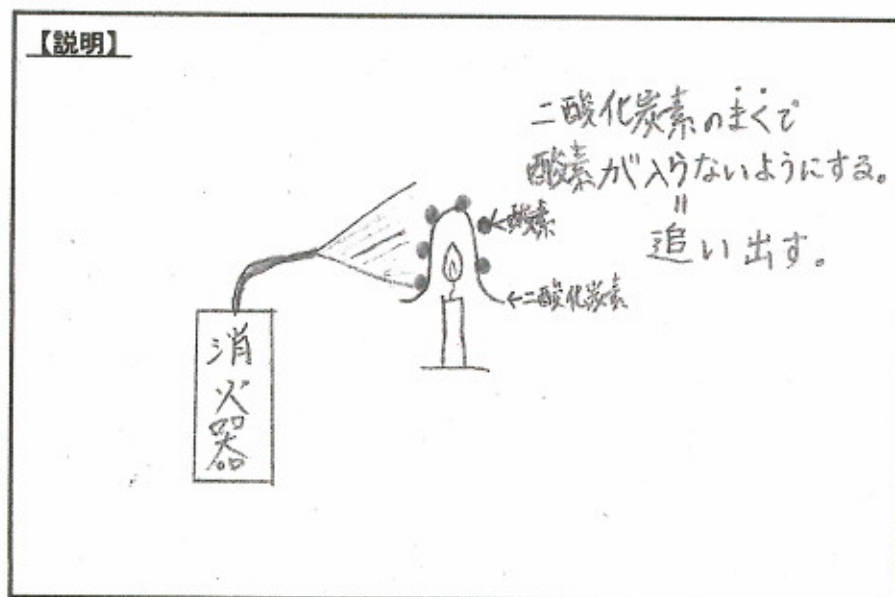 【説明】
二酸化炭素のまくで
酸素が入らないようにする。
〃
追い出す。
←酸素
←二酸化炭素
消火器